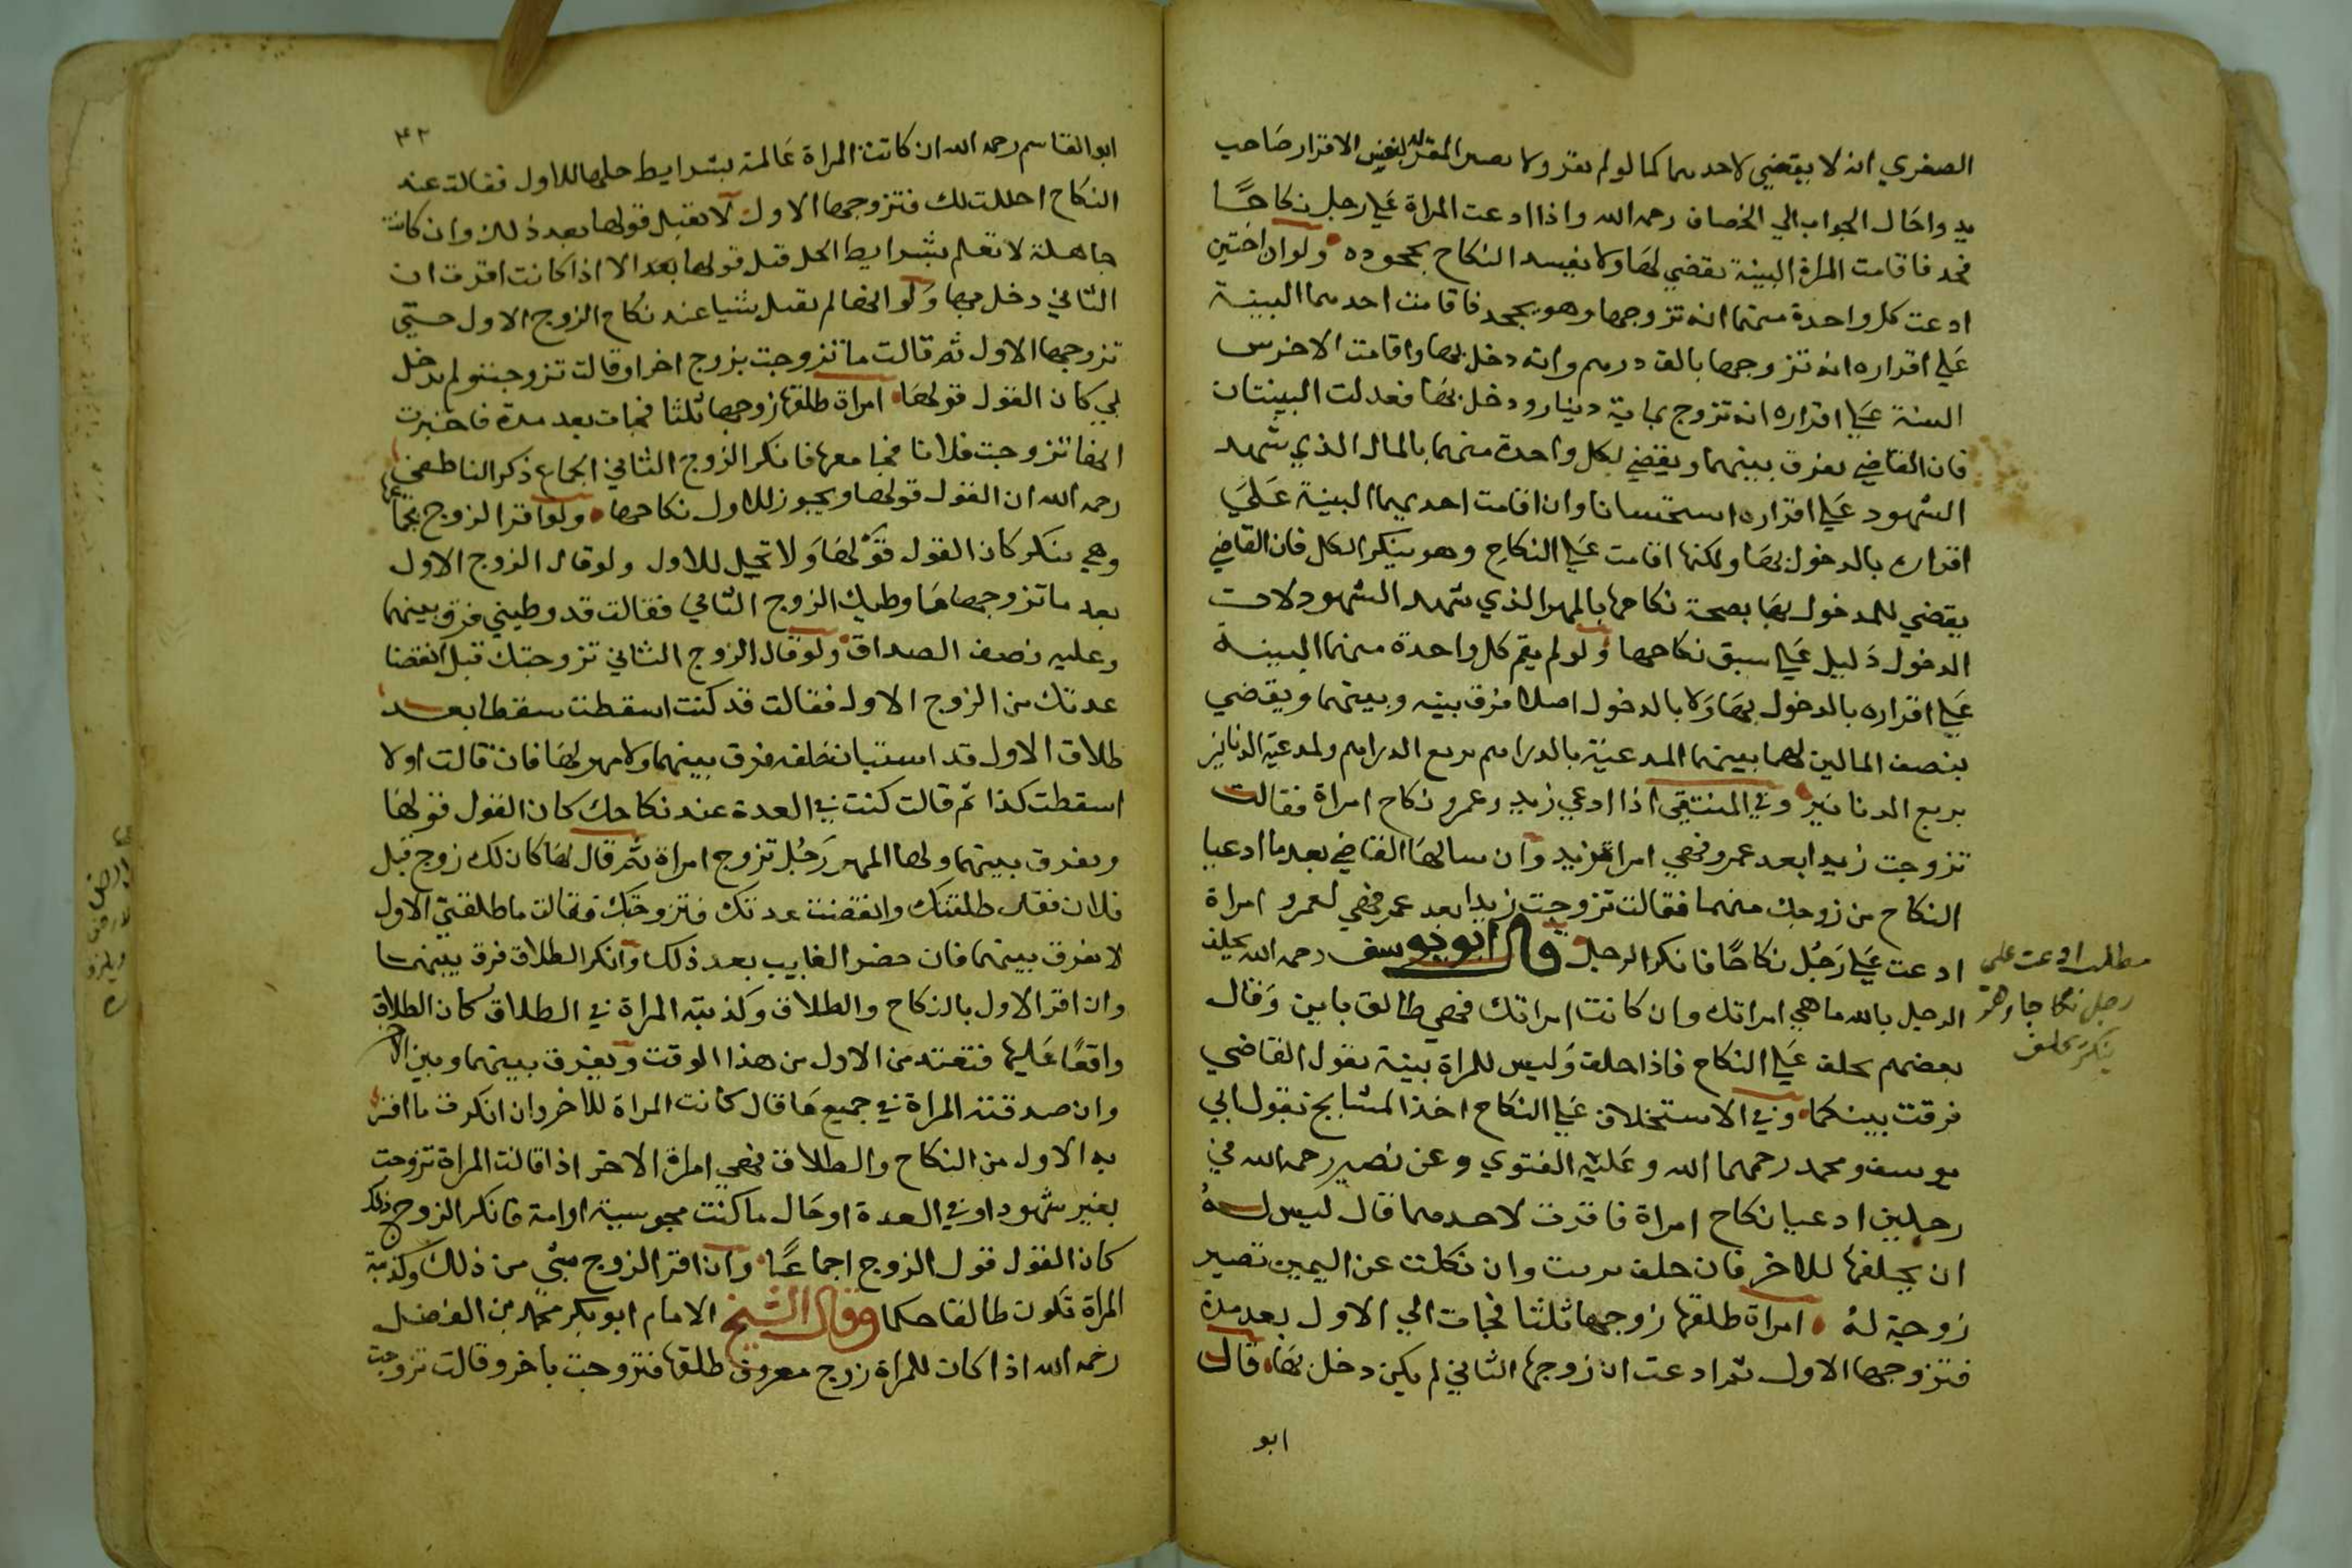 الصغري انه لا يقضي لاحدهما كما لو لم يقر ولا يصير المقر له بنفس الاقرار صاحب
يد واحال الجواب الي الخصاف رحمه الله واذا ادعت المراة علي رجل نكاحًا
فجحد فاقامت المراة البينة يقضي لها ولا يفسد النكاح بجحوده ولو ان اختين
ادعت كل واحدة منهما انه تزوجها وهو يجحد فاقامت احدهما البينة
علي اقراره انه تزوجها بالف درهم وانه دخل بها واقامت الاخري
البينة علي اقراره انه تزوج بماية دينار ودخل بها فعدلت البينتان
فان القاضي يفرق بينهما ويقضي لكل واحدة منهما بالمال الذي شهد
الشهود علي اقراره استحسانا وان اقامت احديهما البينة علي
اقراره بالدخول بها ولكنها اقامت علي النكاح وهو ينكر الكل فان القاضي
يقضي للمدخول بها بصحة نكاحها بالمهر الذي شهد الشهود لان
الدخول دليل علي سبق نكاحها ولو لم يقم كل واحدة منهما البينة
علي اقراره بالدخول بها ولا بالدخول اصلا فرق بينه وبينهما ويقضي
بنصف المالين لهما بينهما المدعية بالدراهم بربع الدراهم ولمدعية الدنانير
بربع الدنانير وفي المنتقي اذا ادعي زيد وعمرو نكاح امراة فقالت
تزوجت زيدا بعد عمرو فهي امراة زيد وان سالها القاضي بعد ما ادعيا
النكاح من زوجك منهما فقالت تزوجت زيدا بعد عمرو فهي لعمرو امراة
ادعت علي رجل نكاحًا فانكر الرجل قال ابو يوسف رحمه الله يحلف
الرجل بالله ما هي امراتك وان كانت امراتك فهي طالق باين وقال
بعضهم يحلف علي النكاح فاذا حلف وليس للمراة بينة يقول القاضي
فرقت بينكما وفي الاستحلاف علي النكاح اخذ المشايخ بقول ابي
يوسف ومحمد رحمهما الله وعليه الفتوي وعن نصير رحمه الله في
رجلين ادعيا نكاح امراة فاقرت لاحدهما قال ليس له
ان يحلفها للاخر فان حلف بريت وان نكلت عن اليمين تصير
زوجية له امراة طلقها زوجها ثلثا فجات الي الاول بعد مدة
فتزوجها الاول ثم ادعت ان زوجها الثاني لم يكن دخل بها قال
ابو
مطلب ادعت علي
رجل نكاحا وهو
ينكر يحلف
٤٢
ابو القاسم رحمه الله ان كانت المراة عالمة بشرايط حلها للاول فقالت عند
النكاح احللت لك فتزوجها الاول لا يقبل قولها بعد ذلك وان كانت
جاهلة لا تعلم بشرايط الحل قبل قولها بعد الا اذا كانت اقرت ان
الثاني دخل بها ولو انها لم تقبل شيا عند نكاح الزوج الاول حتي
تزوجها الاول ثم قالت ما تزوجت بزوج اخر او قالت تزوجت ولم يدخل
بي كان القول قولها امراة طلقها زوجها ثلثا فجات بعد مدة فاخبرت
انها تزوجت فلانا فجامعها فانكر الزوج الثاني الجماع ذكر الناطفي
رحمه الله ان القول قولها ويجوز للاول نكاحها ولو اقر الزوج بجماعها
وهي تنكر كان القول قولها ولا تحل للاول ولو قال الزوج الاول
بعد ما تزوجها ما وطيك الزوج الثاني فقالت قد وطيني فرق بينهما
وعليه نصف الصداق ولو قال الزوج الثاني تزوجتك قبل انقضا
عدتك من الزوج الاول فقالت قد كنت اسقطت سقطا بعد
طلاق الاول قد استبان خلقه فرق بينهما ولا مهر لها فان قالت اولا
اسقطت كذا ثم قالت كنت في العدة عند نكاحك كان القول قولها
ويفرق بينهما ولها المهر رجل تزوج امراة ثم قال لها كان لك زوج قبل
فلان فقال طلقتك وانقضت عدتك فتزوجتك فقالت ما طلقني الاول
لا يفرق بينهما فان حضر الغايب بعد ذلك وانكر الطلاق فرق بينهما
وان اقر الاول بالنكاح والطلاق وكذبته المراة في الطلاق كان الطلاق
واقعًا عليها فتعتد من الاول من هذا الوقت ويفرق بينهما وبين الاخر
وان صدقته المراة في جميع ما قال كانت المراة للاخر وان انكرت ما اقر
به الاول من النكاح والطلاق فهي امراة الاخر اذا قالت المراة تزوجت
بغير شهود او في العدة او حال ما كنت مجوسية او امة فانكر الزوج ذلك
كان القول قول الزوج اجماعًا وان اقر الزوج بشي من ذلك وكذبته
المراة تكون طالقا حكما وقال الشيخ الامام ابو بكر محمد بن الفضل
رحمه الله اذا كان للمراة زوج معروف طلقها فتزوجت باخر وقالت تزوجت